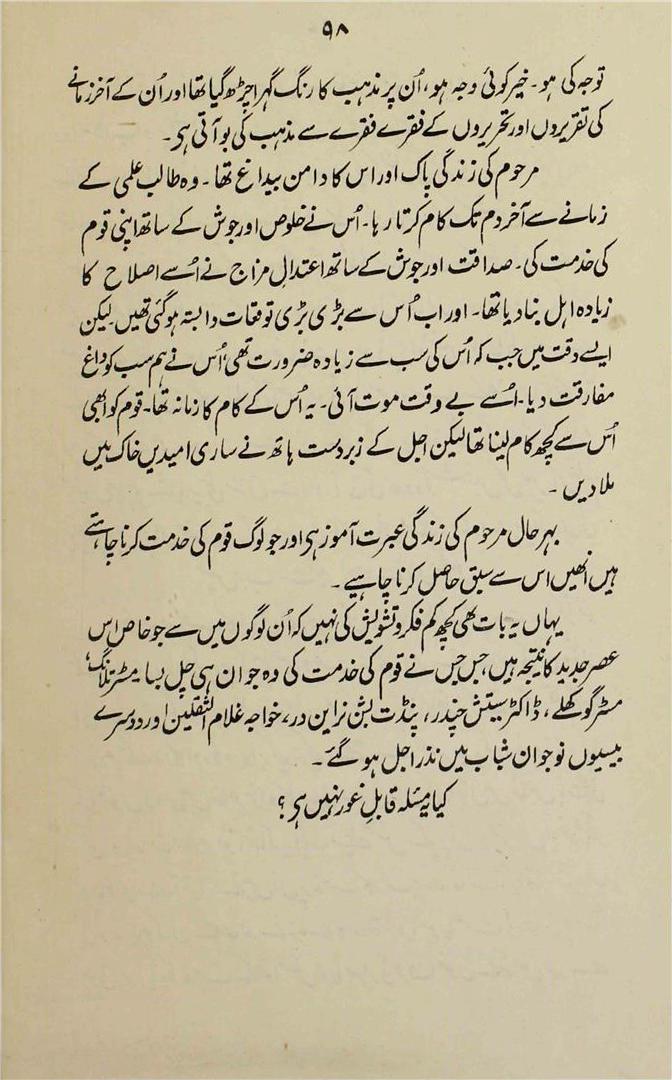 ۹۸
توجہ کی ہو۔ خیر کوئی وجہ ہو، اُن پر مذہب کا رنگ گہرا چڑھ گیا تھا اور اُن کے آخر زمانے
کی تقریروں اور تحریروں کے فقرے فقرے سے مذہب کی بو آتی ہی۔
مرحوم کی زندگی پاک اور اس کا دامن بیداغ تھا۔ وہ طالب علمی کے
زمانے سے آخر دم تک کام کرتا رہا۔ اُس نے خلوص اور جوش کے ساتھ اپنی قوم
کی خدمت کی۔ صداقت اور جوش کے ساتھ اعتدالِ مزاج نے اُسے اصلاح کا
زیادہ اہل بنا دیا تھا۔ اور اب اُس سے بڑی بڑی توقعات وابستہ ہوگئی تھیں۔ لیکن
ایسے وقت میں جب کہ اُس کی سب سے زیادہ ضرورت تھی، اُس نے ہم سب کو داغ
مفارقت دیا۔ اُسے بے وقت موت آئی۔ یہ اُس کے کام کا زمانہ تھا۔ قوم کو ابھی
اُس سے کچھ کام لینا تھا لیکن اجل کے زبردست ہاتھ نے ساری امیدیں خاک میں
ملا دیں۔
بہر حال مرحوم کی زندگی عبرت آموز ہی اور جو لوگ قوم کی خدمت کرنا چاہتے
ہیں انھیں اس سے سبق حاصل کرنا چاہیے۔
یہاں یہ بات بھی کچھ کم فکر و تشویش کی نہیں کہ اُن لوگوں میں سے جو خاص اس
عصر جدید کا نتیجہ ہیں، جس جس نے قوم کی خدمت کی وہ جوان ہی چل بسا۔ مسٹر تلانگ،
مسٹر گوکھلے، ڈاکٹر ستیش چندر، پنڈت بشن نراین در، خواجہ غلام الثقلین اور دوسرے
بیسیوں نوجوان شباب میں نذر اجل ہو گئے۔
کیا یہ مسئلہ قابلِ غور نہیں ہی؟